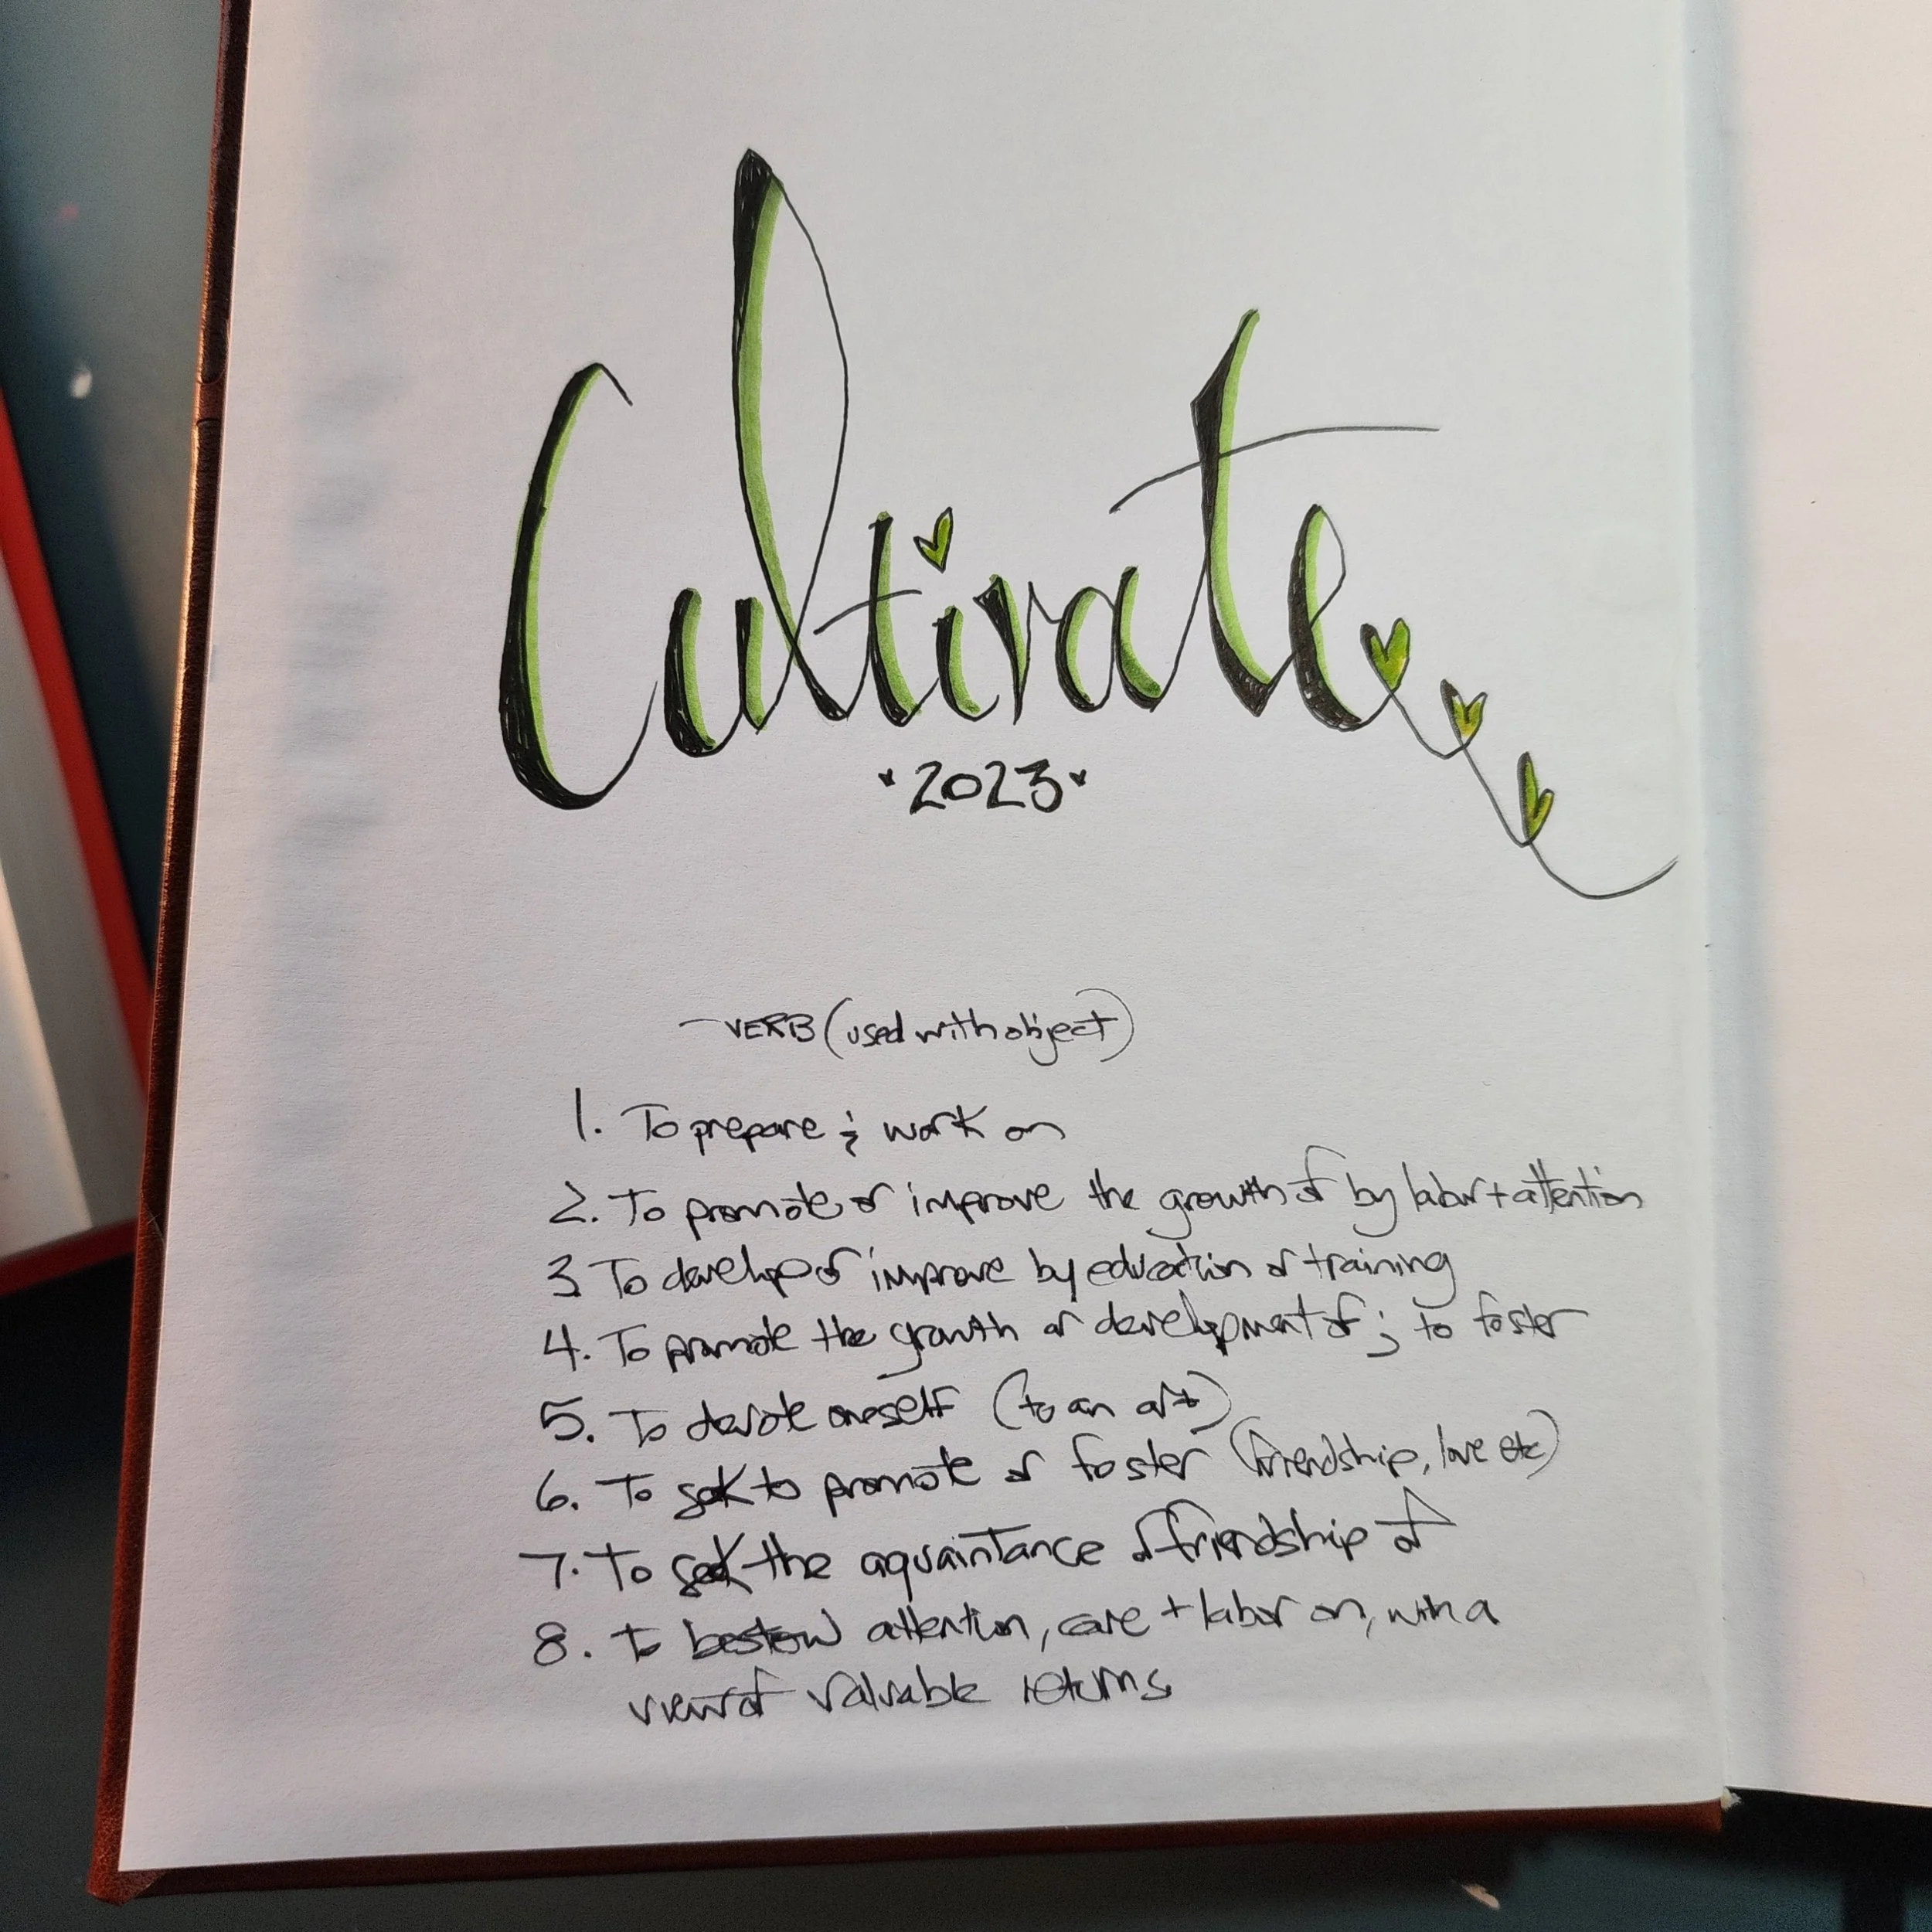 Cultivate
2023
-VERB (used with object)
1. To prepare & work on
2. To promote or improve the growth of by labor + attention
3 To develop or improve by education or training
4. To promote the growth or development of; to foster
5. To devote oneself (to an art)
6. To seek to promote or foster (friendship, love etc)
7. To seek the aquaintance or friendship of
8. To bestow attention, care + labor on, with a
view of valuable returns